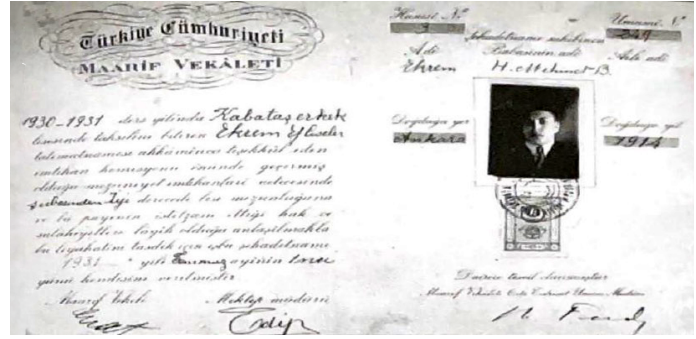 Türkiye Cümhuriyeti
MAARİF VEKÂLETİ
1930-1931 ders yılında Kabataş erkek
lisesinde tahsilini bitiren Ekrem Ef. liseler
talimatnamesi ahkâmınca teşekkül eden
imtihan komisyonu önünde geçirmiş
olduğu mezuniyet imtihanları neticesinde
şubesinden İyi derecede lise mezunluğuna
ve bu payenin istilzam ettiği hak ve
salâhiyetlere lâyik olduğu anlaşılmakla
bu liyakatini tasdik için işbu şehadetname
1931 yılı Temmuz ayının
günü kendisine verilmiştir.
Maarif Vekili Mektep müdürü
Edip
Hususî No Umumî No
3 249
Şehadetname sahibinin
Adı Babasının adı Aile adı
Ekrem H. Mehmet B.
Doğduğu yer Doğduğu yıl
Ankara 1914
Dairece tescil olunmuştur
Maarif Vekâleti Orta Tedrisat Umum Müdürü